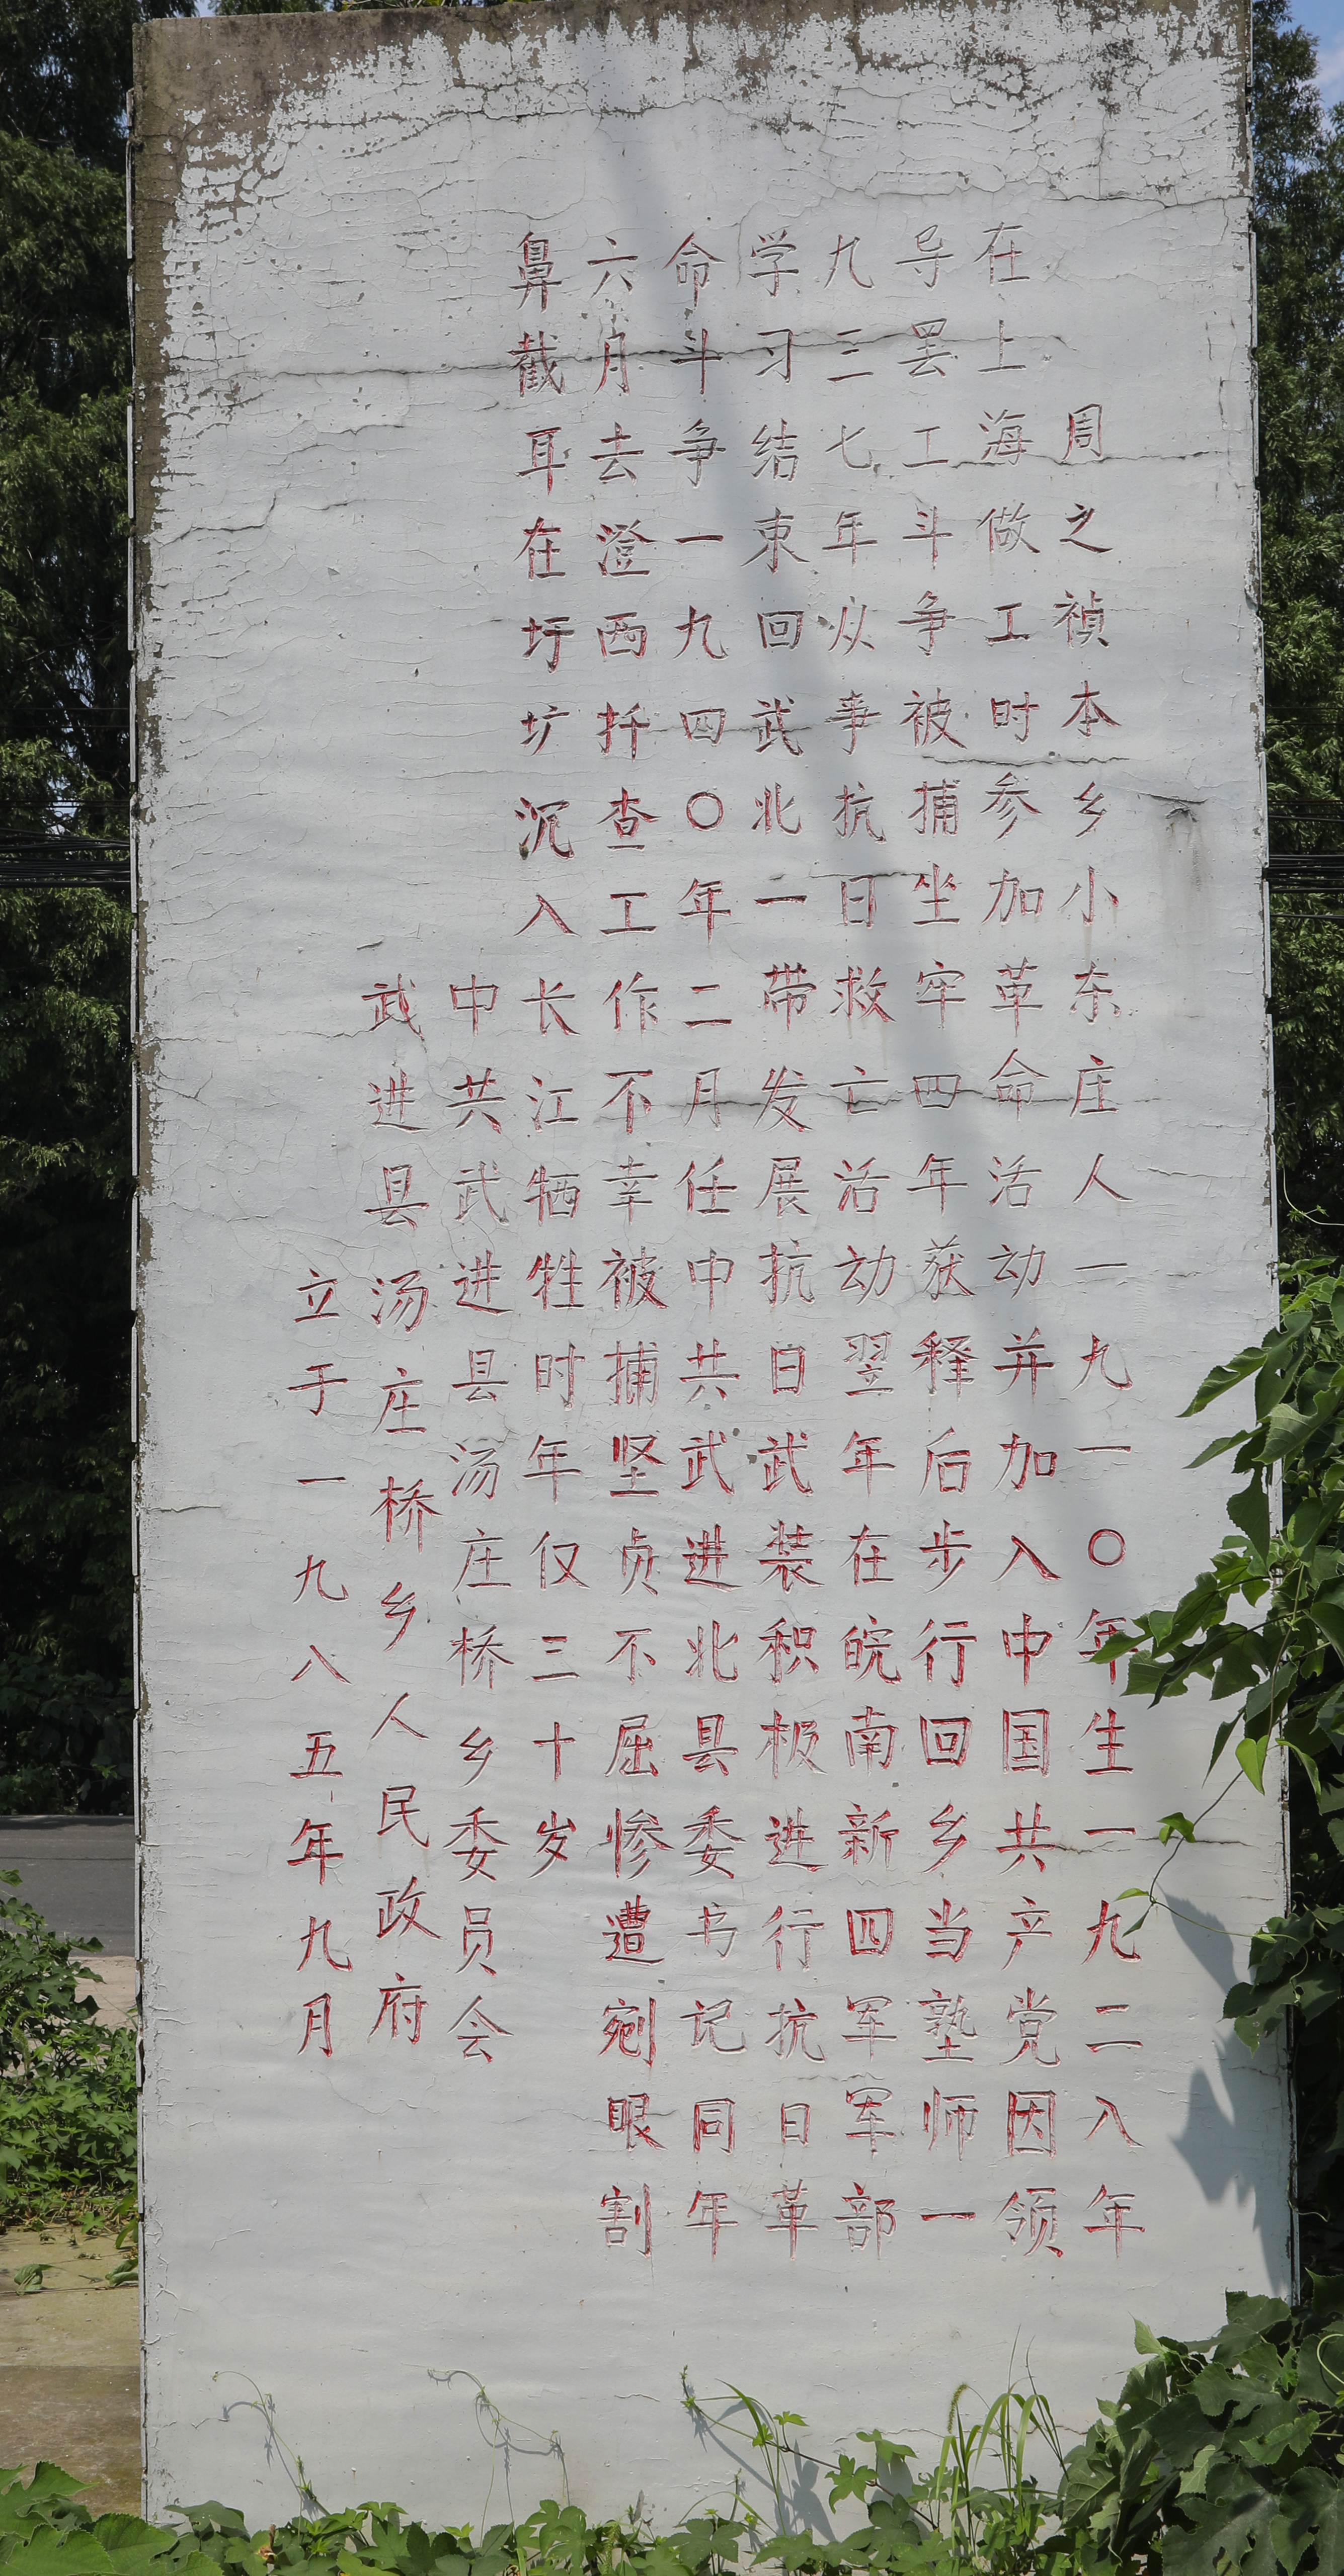 周之祯本乡小东庄人一九一〇年生一九二八年
在上海做工时参加革命活动并加入中国共产党因领
导罢工斗争被捕坐牢四年获释后步行回乡当塾师一
九三七年从事抗日救亡活动翌年在皖南新四军军部
学习结束回武北一带发展抗日武装积极进行抗日革
命斗争一九四〇年二月任中共武进北县委书记同年
六月去澄西扦查工作不幸被捕坚贞不屈惨遭剜眼割
鼻截耳在圩圹沉入长江牺牲时年仅三十岁
中共武进县汤庄桥乡委员会
武进县汤庄桥乡人民政府
立于一九八五年九月